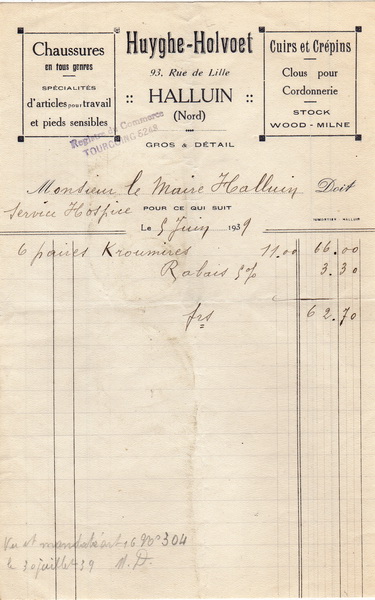 Chaussures
en tous genres
SPÉCIALITÉS
d'articles pour travail
et pieds sensibles
Huyghe-Holvoet
93, Rue de Lille
:: HALLUIN ::
(Nord)
GROS & DÉTAIL
Cuirs et Crépins
Clous pour
Cordonnerie
STOCK
WOOD-MILNE
Registre du Commerce
TOURCOING 5248
Monsieur le Maire Halluin Doit
Service Hospice POUR CE QUI SUIT
Le 5 Juin 1939
6 paires Kroumires 11.00 66.00
Rabais 5% 3.30
frs 62.70
Vu et mandaté art 16 No 304
le 30 juillet 39 M. D.